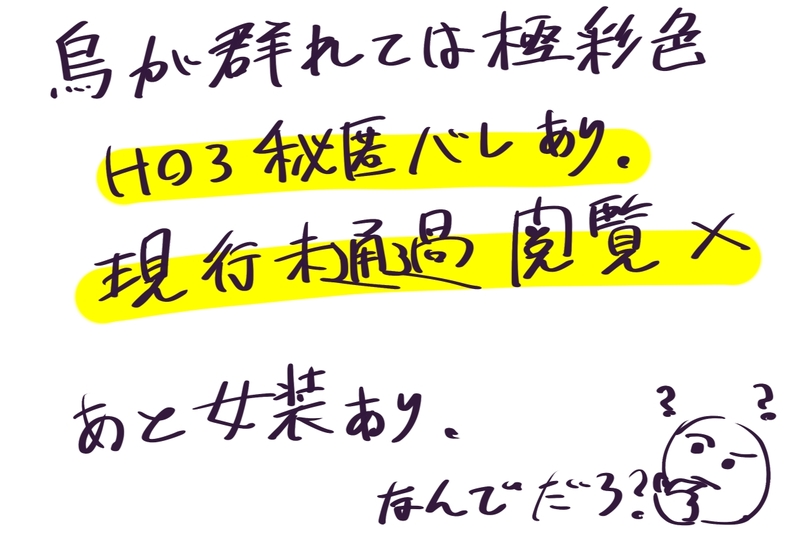 烏が群れては極彩色
HO3秘匿バレあり.
現行未通過閲覧×
あと女装あり.
なんでだろ?
? ?